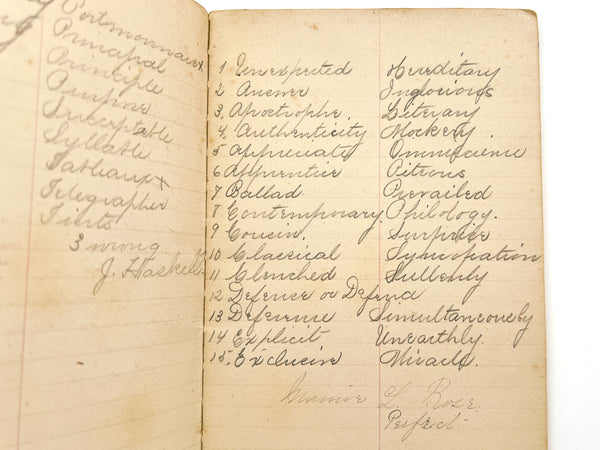 Portmonnaiux
Principal
Principle
Purpose
Susceptable
Syllable
Tableaux x
Telegrapher
Tints
3 wrong
J. Haskell
1 Unexpected Hereditary
2 Answer Inglorious
3. Apostrophe. Literary
4. Authenticity Mockery.
5 Appreciate Omniscience
6 Apprentice Piteous
7 Ballad Prevailed
8 Contemporary Philology.
9 Cousin. Surprise
10 Classical Syncopation
11 Clenched Sullenly
12 Defense or Defence
13 Deference Simultaneously
14 Explicit Unearthly.
15. Exclusive Miracle.
L. Rose
Perfect